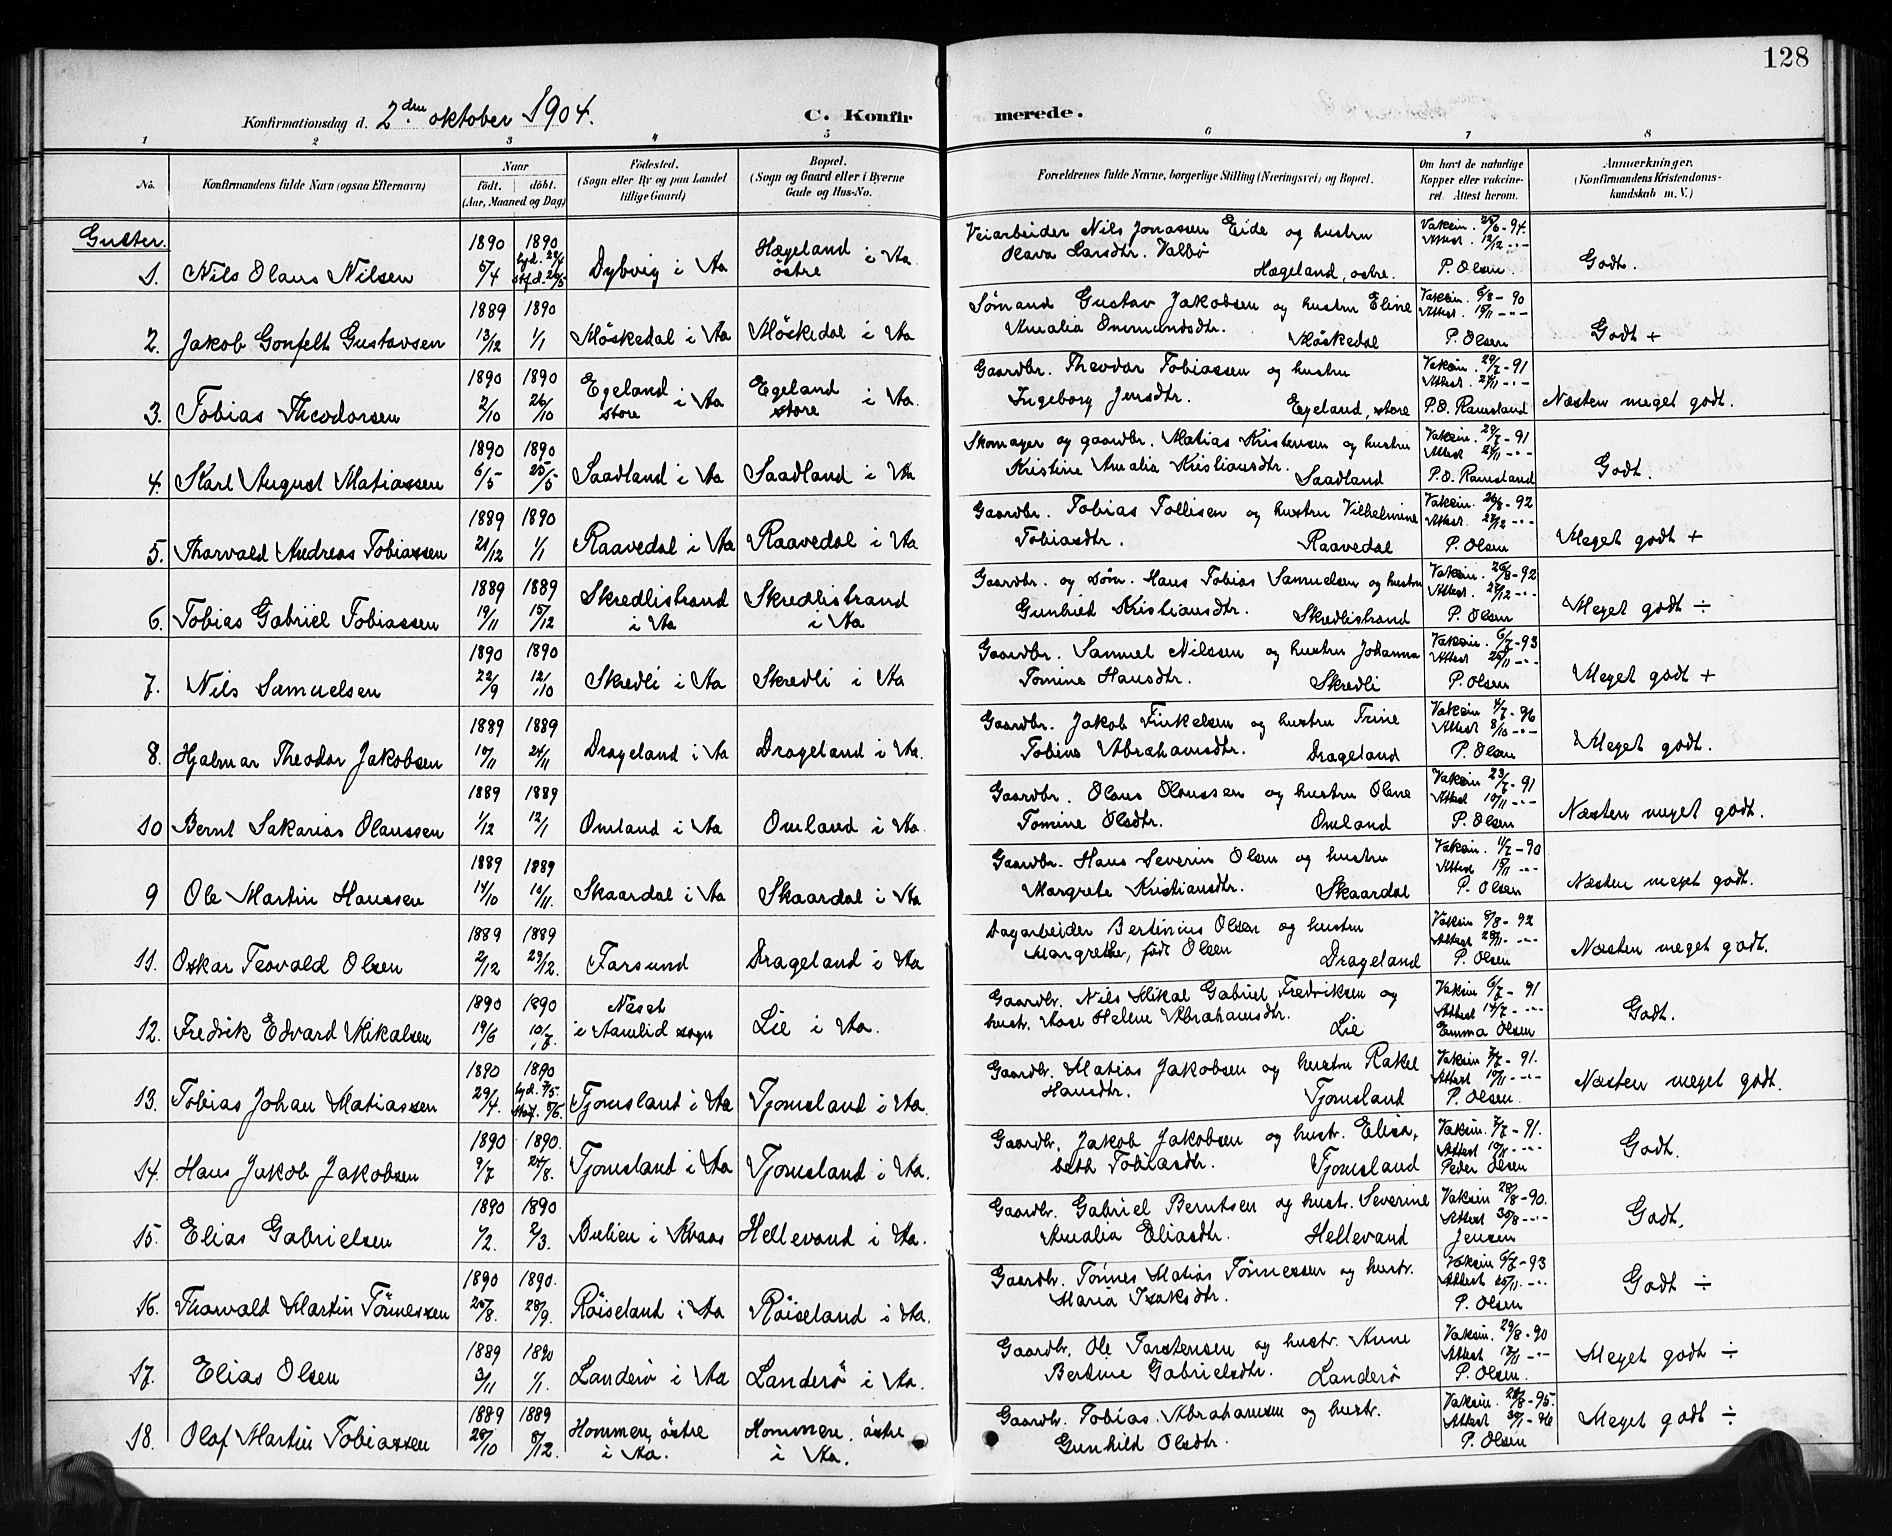 128
Konfirmationsdag d. 2den oktober 1904.
C. Konfirmerede.
1 2 3 4 5 6 7 8
No. Konfirmandens fulde Navn (ogsaa Efternavn) Naar født. døbt. (Aar, Maaned og Dag) Fødested. (Sogn eller By og paa Landet tillige Gaard) Bopæl. (Sogn og Gaard eller i Byerne Gade og Hus-No. Forældrenes fulde Navne, borgerlige Stilling (Næringsvei) og Bopæl. Om havt de naturlige Kopper eller vaccineret. Attest herom. Anmærkninger. (Konfirmandens Kristendomskundskab m. V.)
Gutter.
1. Nils Olaus Nilsen 1890 5/4 1890 Dybvig i Aa Hægeland østre i Aa. Veiarbeider Nils Jonassen Eide og hustru Olava Larsdtr. Valbø Hægeland, østre. Vaksin. 25/6-94 Attest. 12/12 -"- P. Olsen. Godt.
2. Jakob Gonfelt Gustavsen 1889 13/12 1890 1/1 Møskedal i Aa Møskedal i Aa Sømand Gustav Jakobsen og hustru Eline Amalia Ommundsdtr. Møskedal Vaksin. 6/8-90 Attest. 15/11 -"- P. Olsen Godt +
3. Tobias Theodorsen 1890 2/10 1890 26/10 Egeland store i Aa Egeland store i Aa. Gaardbr. Theodor Tobiassen og hustru Ingeborg Jensdtr. Egeland, store Vaksin. 29/7-91 Attest. 27/11 -"- P.O. Ramsland Næsten meget godt.
4. Karl August Matiassen 1890 6/5 1890 25/5 Saadland i Aa Saadland i Aa Skomager og gaardbr. Matias Kristensen og hustru Kristine Amalia Kristiansdtr. Saadland Vaksin. 29/7-91 Attest. 27/11 -"- P.O. Ramsland Godt.
5. Thorvald Andreas Tobiassen 1889 21/12 1890 1/1 Raavedal i Aa Raavedal i Aa Gaardbr. Tobias Tollisen og hustru Vilhelmine Tobiasdtr. Raavedal Vaksin. 26/8-92 Attest. 27/12 -"- P. Olsen Meget godt +
6. Tobias Gabriel Tobiassen 1889 19/11 1889 15/12 Skredlistrand i Aa Skredlistrand i Aa Gaardbr. og søm. Hans Tobias Samuelsen og hustru Gunbiet Kristiansdtr. Skredlistrand Vaksin. 26/8-92 Attest. 27/12 -"- P. Olsen Meget godt ÷
7. Nils Samuelsen 1890 22/9 1890 12/10 Skredli i Aa Skredli i Aa Gaardbr. Samuel Nilssen og hustru Johanna Tomine Hansdtr. Skredli Vaksin. 6/7-93 Attest 25/11 -"- P. Olsen Meget godt +
8. Hjalmar Theodor Jakobsen 1889 10/11 1889 24/11 Drageland i Aa Drageland i Aa. Gaardbr. Jakob Tinkelsen og hustru Trine Tobine Abrahamsdtr. Drageland Vaksin 4/7-96 Attest 8/10 -"- P. Olsen Meget godt.
10 Bernt Sakarias Olaussen 1889 1/12 1889 12/1 Omland i Aa Omland i Aa. Gaardbr. Olaus Olaussen og hustru Olene Tomine Olsdtr. Omland Vaksin 23/7-91 Attest 10/11 -"- P. Olsen Næsten meget godt.
9 Ole Martin Hanssen 1889 14/10 1889 10/11. Skaardal i Aa Skaardal i Aa Gaardbr. Hans Severin Olsen og hustru Margrete Kristiansdtr. Skaardal Vaksin. 11/7-90 Attest 15/11 -"- P. Olsen Næsten meget godt.
11. Oskar Teovald Olsen 1889 2/12 1889 29/12. Farsund Drageland i Aa Dagarbeider Bertinius Olsen og hustru Margrethe, født Olsen Drageland Vaksin 8/8-92 Attest 28/11 -"- P. Olsen Næsten meget godt.
12. Fredrik Edvard Mikalsen 1890 19/6 1890 10/7 Neset i Aamlid sogn Lie i Aa. Gaardbr. Nils Mikal Gabriel Fredriksen og hustr. Aase Helene Abrahamsdtr. Lie Vaksin 6/7-91 Attest 14/7 -"- Emma Olsen Godt.
13. Tobias Johan Matiassen 1890 29/4. 1890 Tjomsland i Aa Tjomsland i Aa. Gaardbr. Matias Jakobsen og hustru Rakel Hansdtr. Tjomsland Vaksin 7/7-91. Attest 10/11 -"- P. Olsen. Næsten meget godt.
14. Hans Jakob Jakobsen 1890 9/7 1890. 24/8. Tjomsland i Aa Tjomsland i Aa. Gaardbr. Jakob Jakobsen og hustr. Elisabeth Tobiasdtr. Tjomsland Vaksin. 7/7-91. Attest 10/11 -"- Peder Olsen Godt.
15. Elias Gabrielsen 1890 1/2. 1890 2/3. i Kvaas Hellevand i Aa. Gaardbr. Gabriel Berntsen og hustr. Severine Amalia Eliasdtr. Hellevand Vaksin 28/8-90. Attest 30/8 -"- Jensen Godt.
16. Thorvald Martin Tönnessen 1890 20/8. 1890. 28/9. Röiseland i Aa Röiseland i Aa. Gaardbr. Tönnes Matias Tönnessen og hustr. Maria Isaksdtr. Vaksin 6/7-93 Attest 25/11 -"- P. Olsen Godt ÷
17. Elias Olsen 1889 3/11 1890 1/1. Landerö i Aa Landerö i Aa. Gaardbr. Ole Torstensen og hustr. Anne Bertine Gabrielsdtr. Landerö Vaksin. 29/8-90 Attest 13/11 -"- P. Olsen Meget godt ÷
18. Olaf Martin Tobiassen 1889 20/10 1889 8/12. Hommen, östre i Aa. Hommen, östre i Aa. Gaardbr. Tobias Abrahamsen og hustr. Gunhild Olsdtr. Vaksin. 28/8-95. Attest 30/1-96 P. Olsen Meget godt ÷